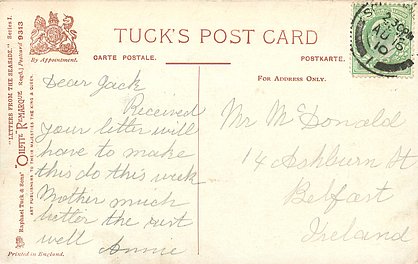 TUCK'S POST CARD
CARTE POSTALE.
POSTKARTE.
By Appointment.
FOR ADDRESS ONLY.
"LETTERS FROM THE SEASIDE." Series I.
"OILETTE REMARQUE Regd.) Postcard 9313
Raphael Tuck & Sons'
ART PUBLISHERS TO THEIR MAJESTIES THE KING & QUEEN.
Printed in England.
Dear Jack
Received
your letter will
have to make
this do this week
Mother much
better the rest
well Annie
Mr McDonald
14 Ashburn St
Belfast
Ireland
2.30PM
AU 16
10